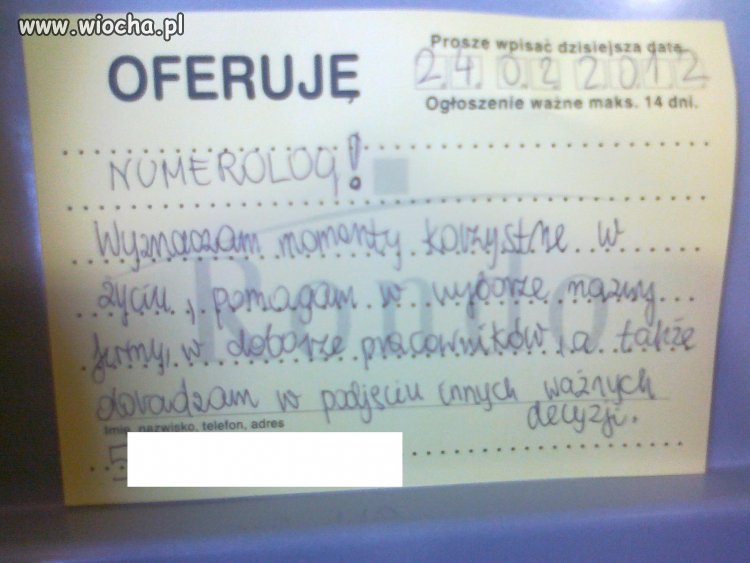 www.wiocha.pl
OFERUJĘ
Prosze wpisać dzisiejsza datę
24 02 2012
Ogłoszenie ważne maks. 14 dni.
NUMEROLOG!
Rondo
Wyznaczam momenty korzystne w
życiu, pomagam w wyborze nazwy
firmy, w doborze pracowników, a także
doradzam w podjęciu innych ważnych
decyzji.
Imię, nazwisko, telefon, adres
5